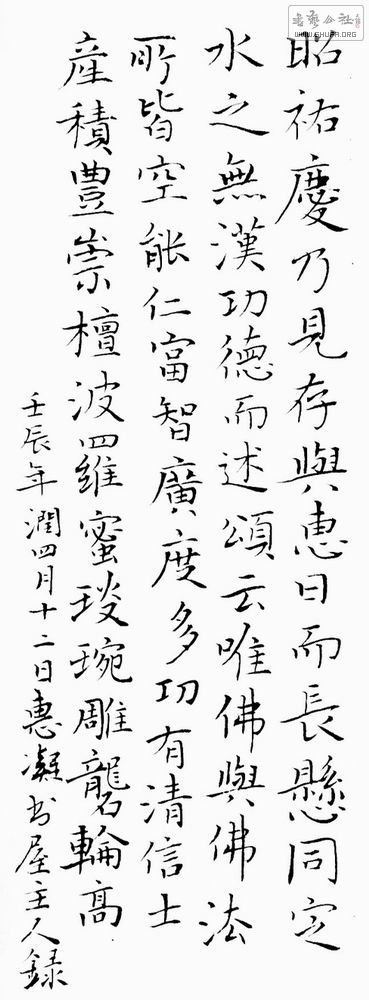 昭祐慶乃見存與惠日而長懸同定
水之無漢功德而述頌云唯佛與佛法
所皆空能仁富智廣度多功有清信士
產積豊崇檀波四維蜜琰琬雕礱輪高
壬辰年潤四月十二日惠凝书屋主人録
书艺公社
www.SHUFA.ORG